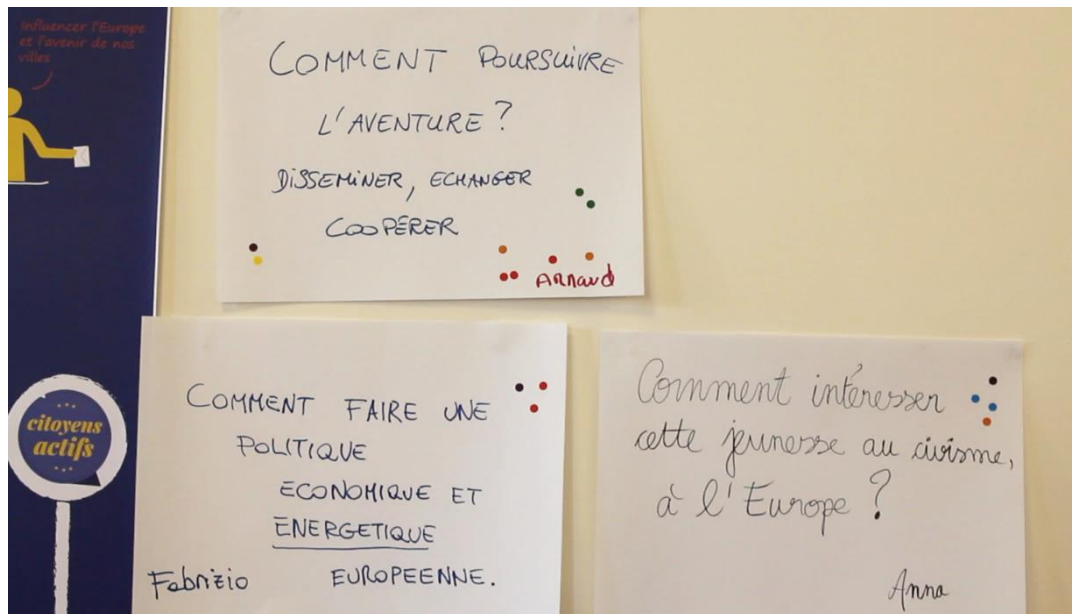 Influencer l'Europe
et l'avenir de nos
villes
COMMENT POURSUIVRE
L'AVENTURE ?
DISSEMINER, ECHANGER
COOPÉRER
ARNAUD
citoyens
actifs
COMMENT FAIRE UNE
POLITIQUE
ECONOMIQUE ET
ENERGETIQUE
EUROPEENNE.
Fabrizio
Comment intéresser
cette jeunesse au civisme,
à l'Europe ?
Anna